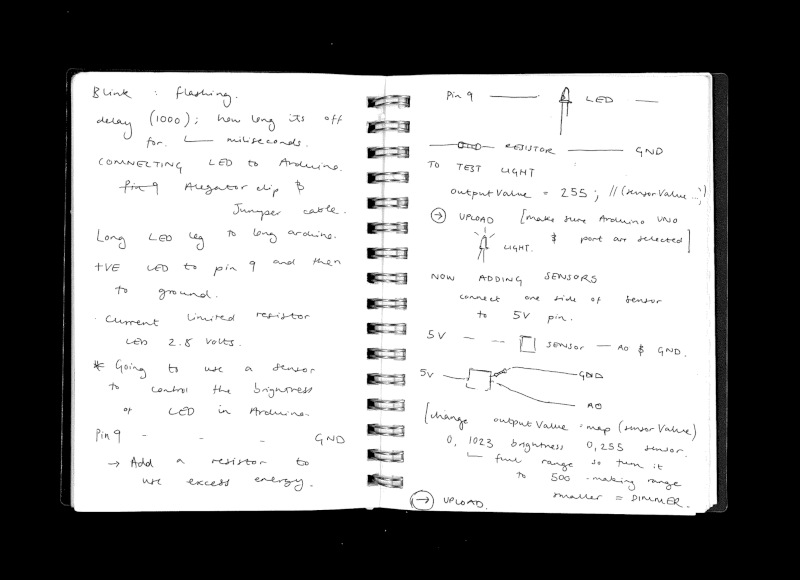 Blink : flashing.
delay (1000); how long its off
for. miliseconds.
CONNECTING LED to Arduino.
Pin 9 Alegator clip &
Jumper cable.
Long LED leg to long arduino.
+VE LED to pin 9 and then
to ground.
. Current limited resistor
LED 2.8 Volts.
* Going to use a sensor
to control the brightness
of LED in Arduino.
Pin 9 - - - GND
→ Add a resistor to
use excess energy.
Pin 9 — LED —
RESISTOR — GND
TO TEST LIGHT
output Value = 255; //(sensorValue...;)
→ UPLOAD [make sure Arduino UNO
& port are selected]
LIGHT.
NOW ADDING SENSORS
connect one side of sensor
to 5V pin.
5V — — SENSOR — A0 & GND.
5V GND
A0
[change outputValue = map (sensorValue)
0, 1023 brightness 0,255 sensor.
full range so turn it
to 500 - making range
smaller = DIMMER.
→ UPLOAD.